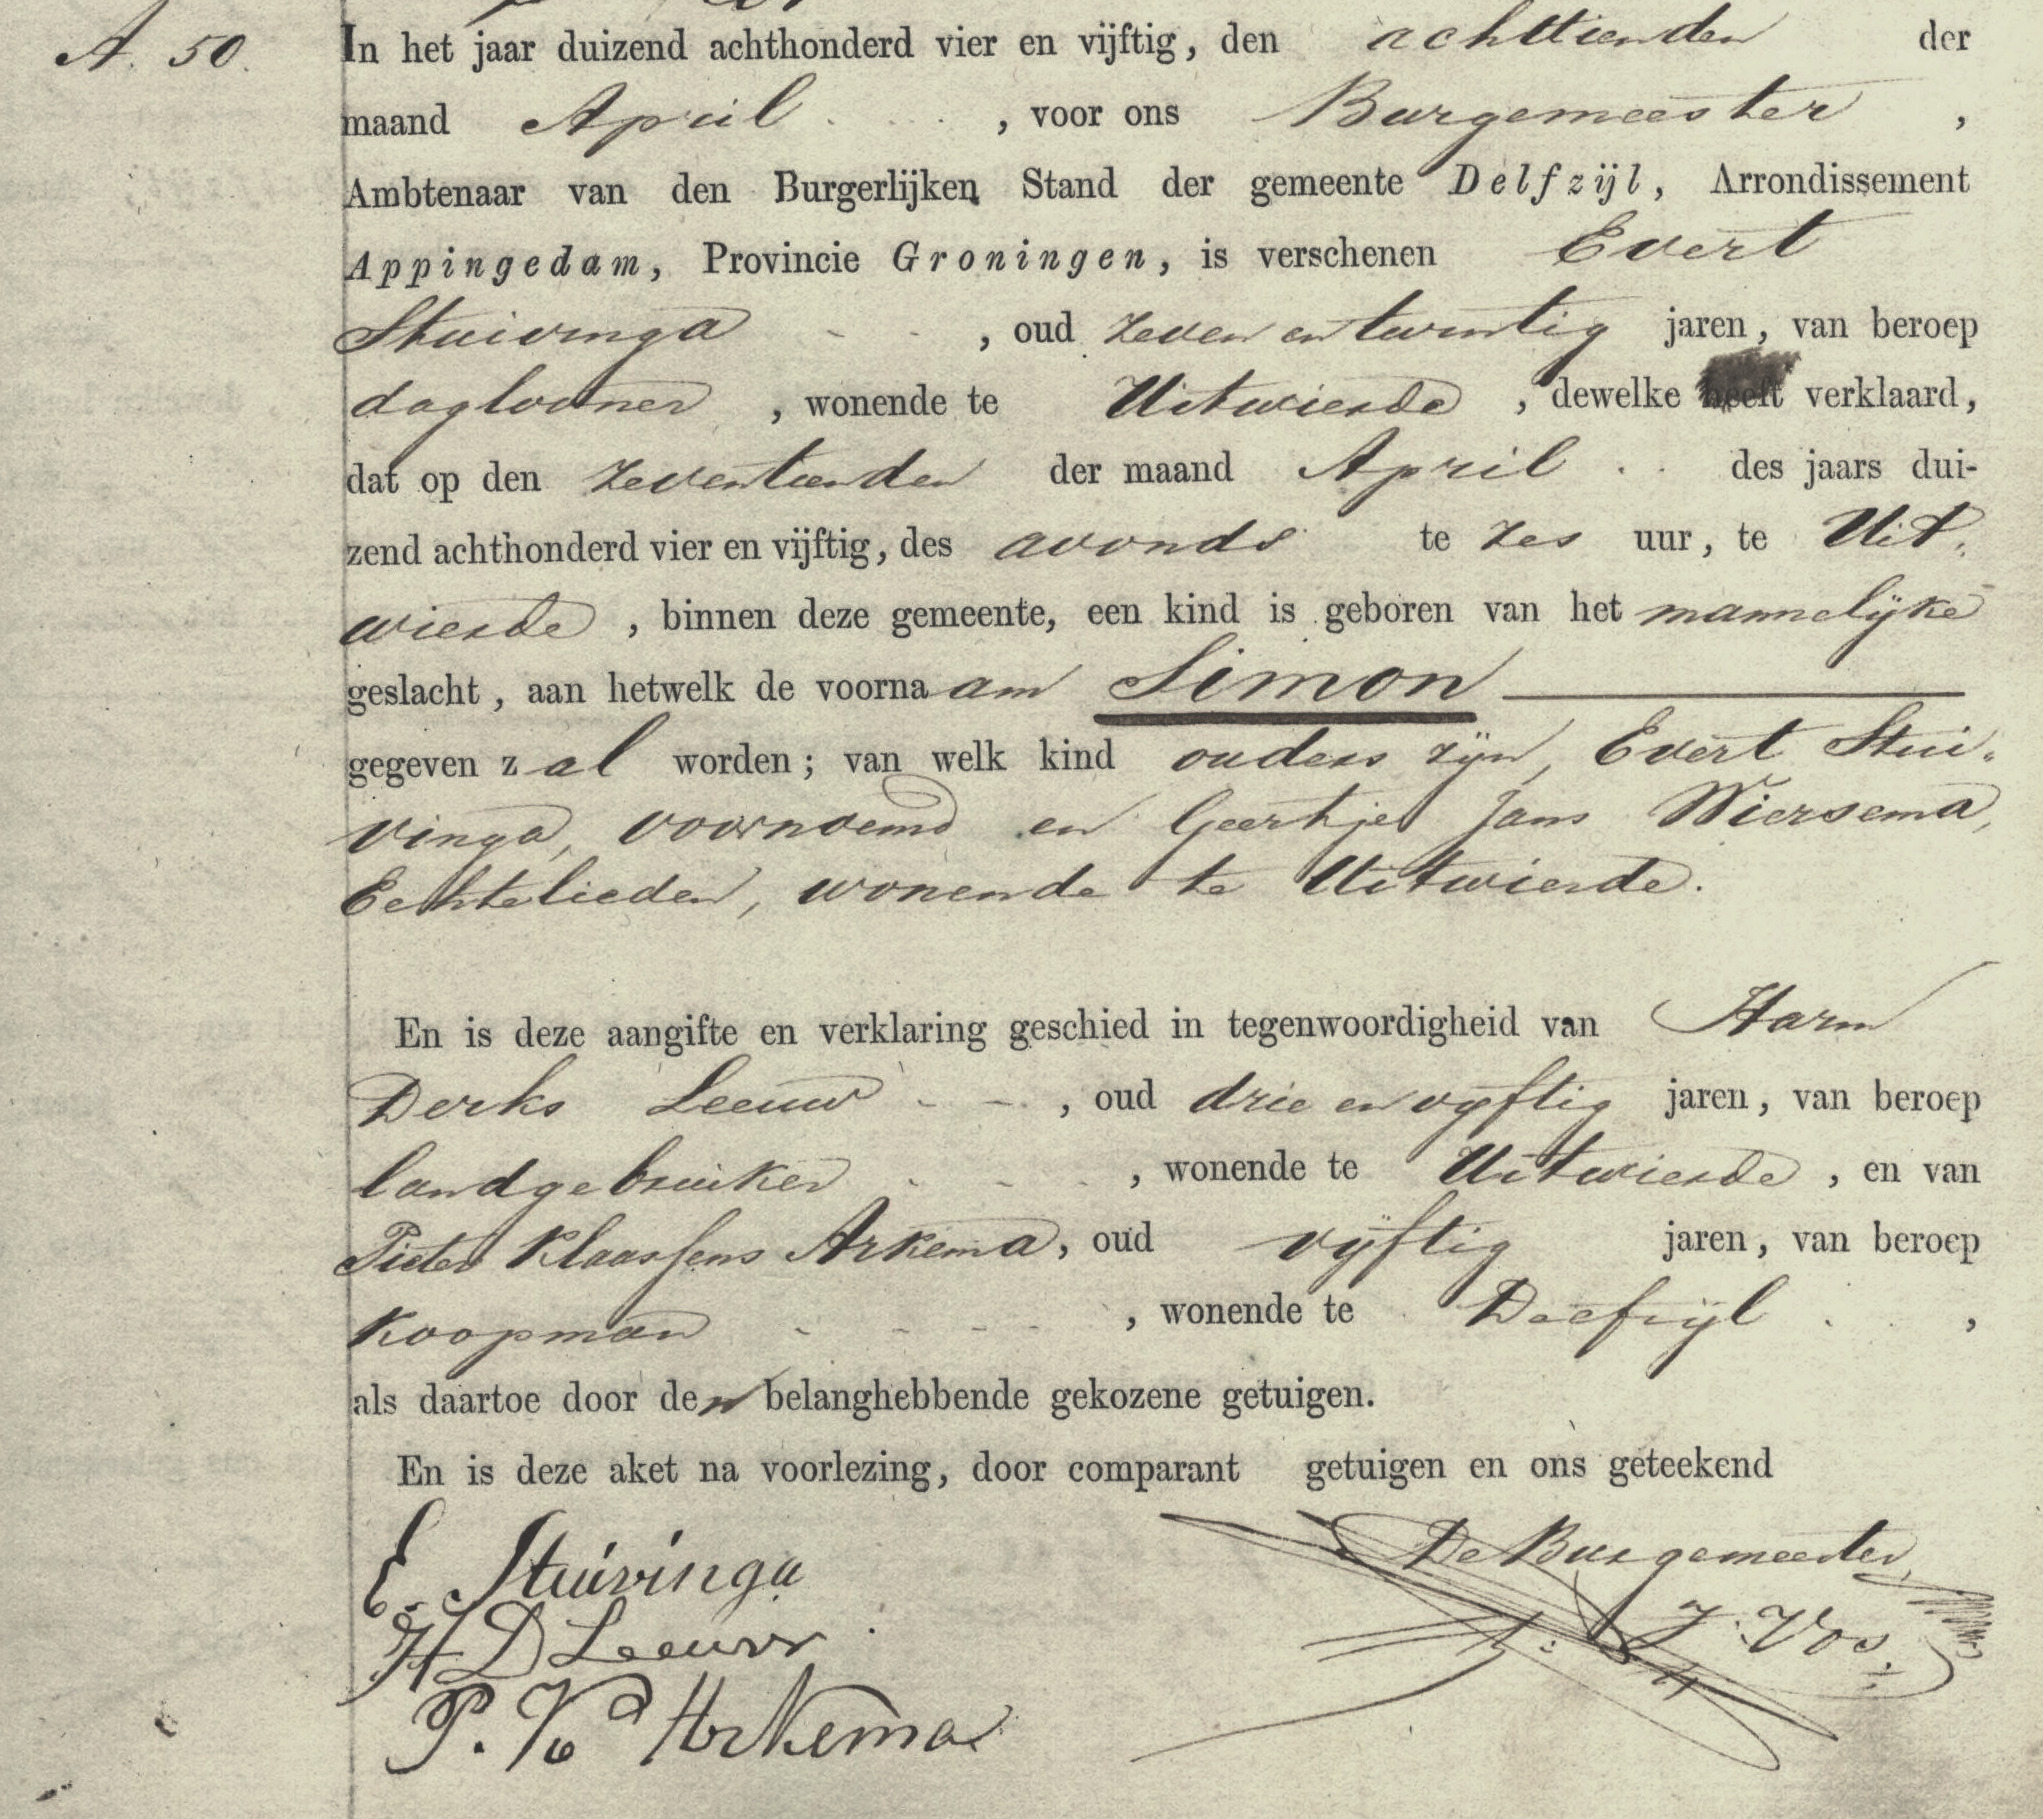 A. 50.
In het jaar duizend achthonderd vier en vijftig, den achttienden der
maand April . . . . , voor ons Burgemeester ,
Ambtenaar van den Burgerlijken Stand der gemeente Delfzijl, Arrondissement
Appingedam, Provincie Groningen, is verschenen Evert
Stuivinga - - , oud zeven en twintig jaren, van beroep
daglooner , wonende te Uitwierde , dewelke heeft verklaard,
dat op den zeventienden der maand April . . des jaars dui-
zend achthonderd vier en vijftig, des avonds te zes uur, te Uit-
wierde , binnen deze gemeente, een kind is geboren van het mannelijke
geslacht, aan hetwelk de voornaam Simon
gegeven zal worden; van welk kind ouders zijn, Evert Stui-
vinga, voornoemd en Geertje Jans Wiersema,
Echtelieden, wonende te Uitwierde.
En is deze aangifte en verklaring geschied in tegenwoordigheid van Harm
Derks Leeuw - - , oud drie en vijftig jaren, van beroep
landgebruiker - - - , wonende te Uitwierde , en van
Pieter Klaassens Arkema, oud vijftig jaren, van beroep
Koopman - - - - , wonende te Delfzijl . . ,
als daartoe door den belanghebbende gekozene getuigen.
En is deze aket na voorlezing, door comparant getuigen en ons geteekend
E. Stuivinga
De Burgemeester,
H D Leeuw
J. Vos.
P. K Arkema